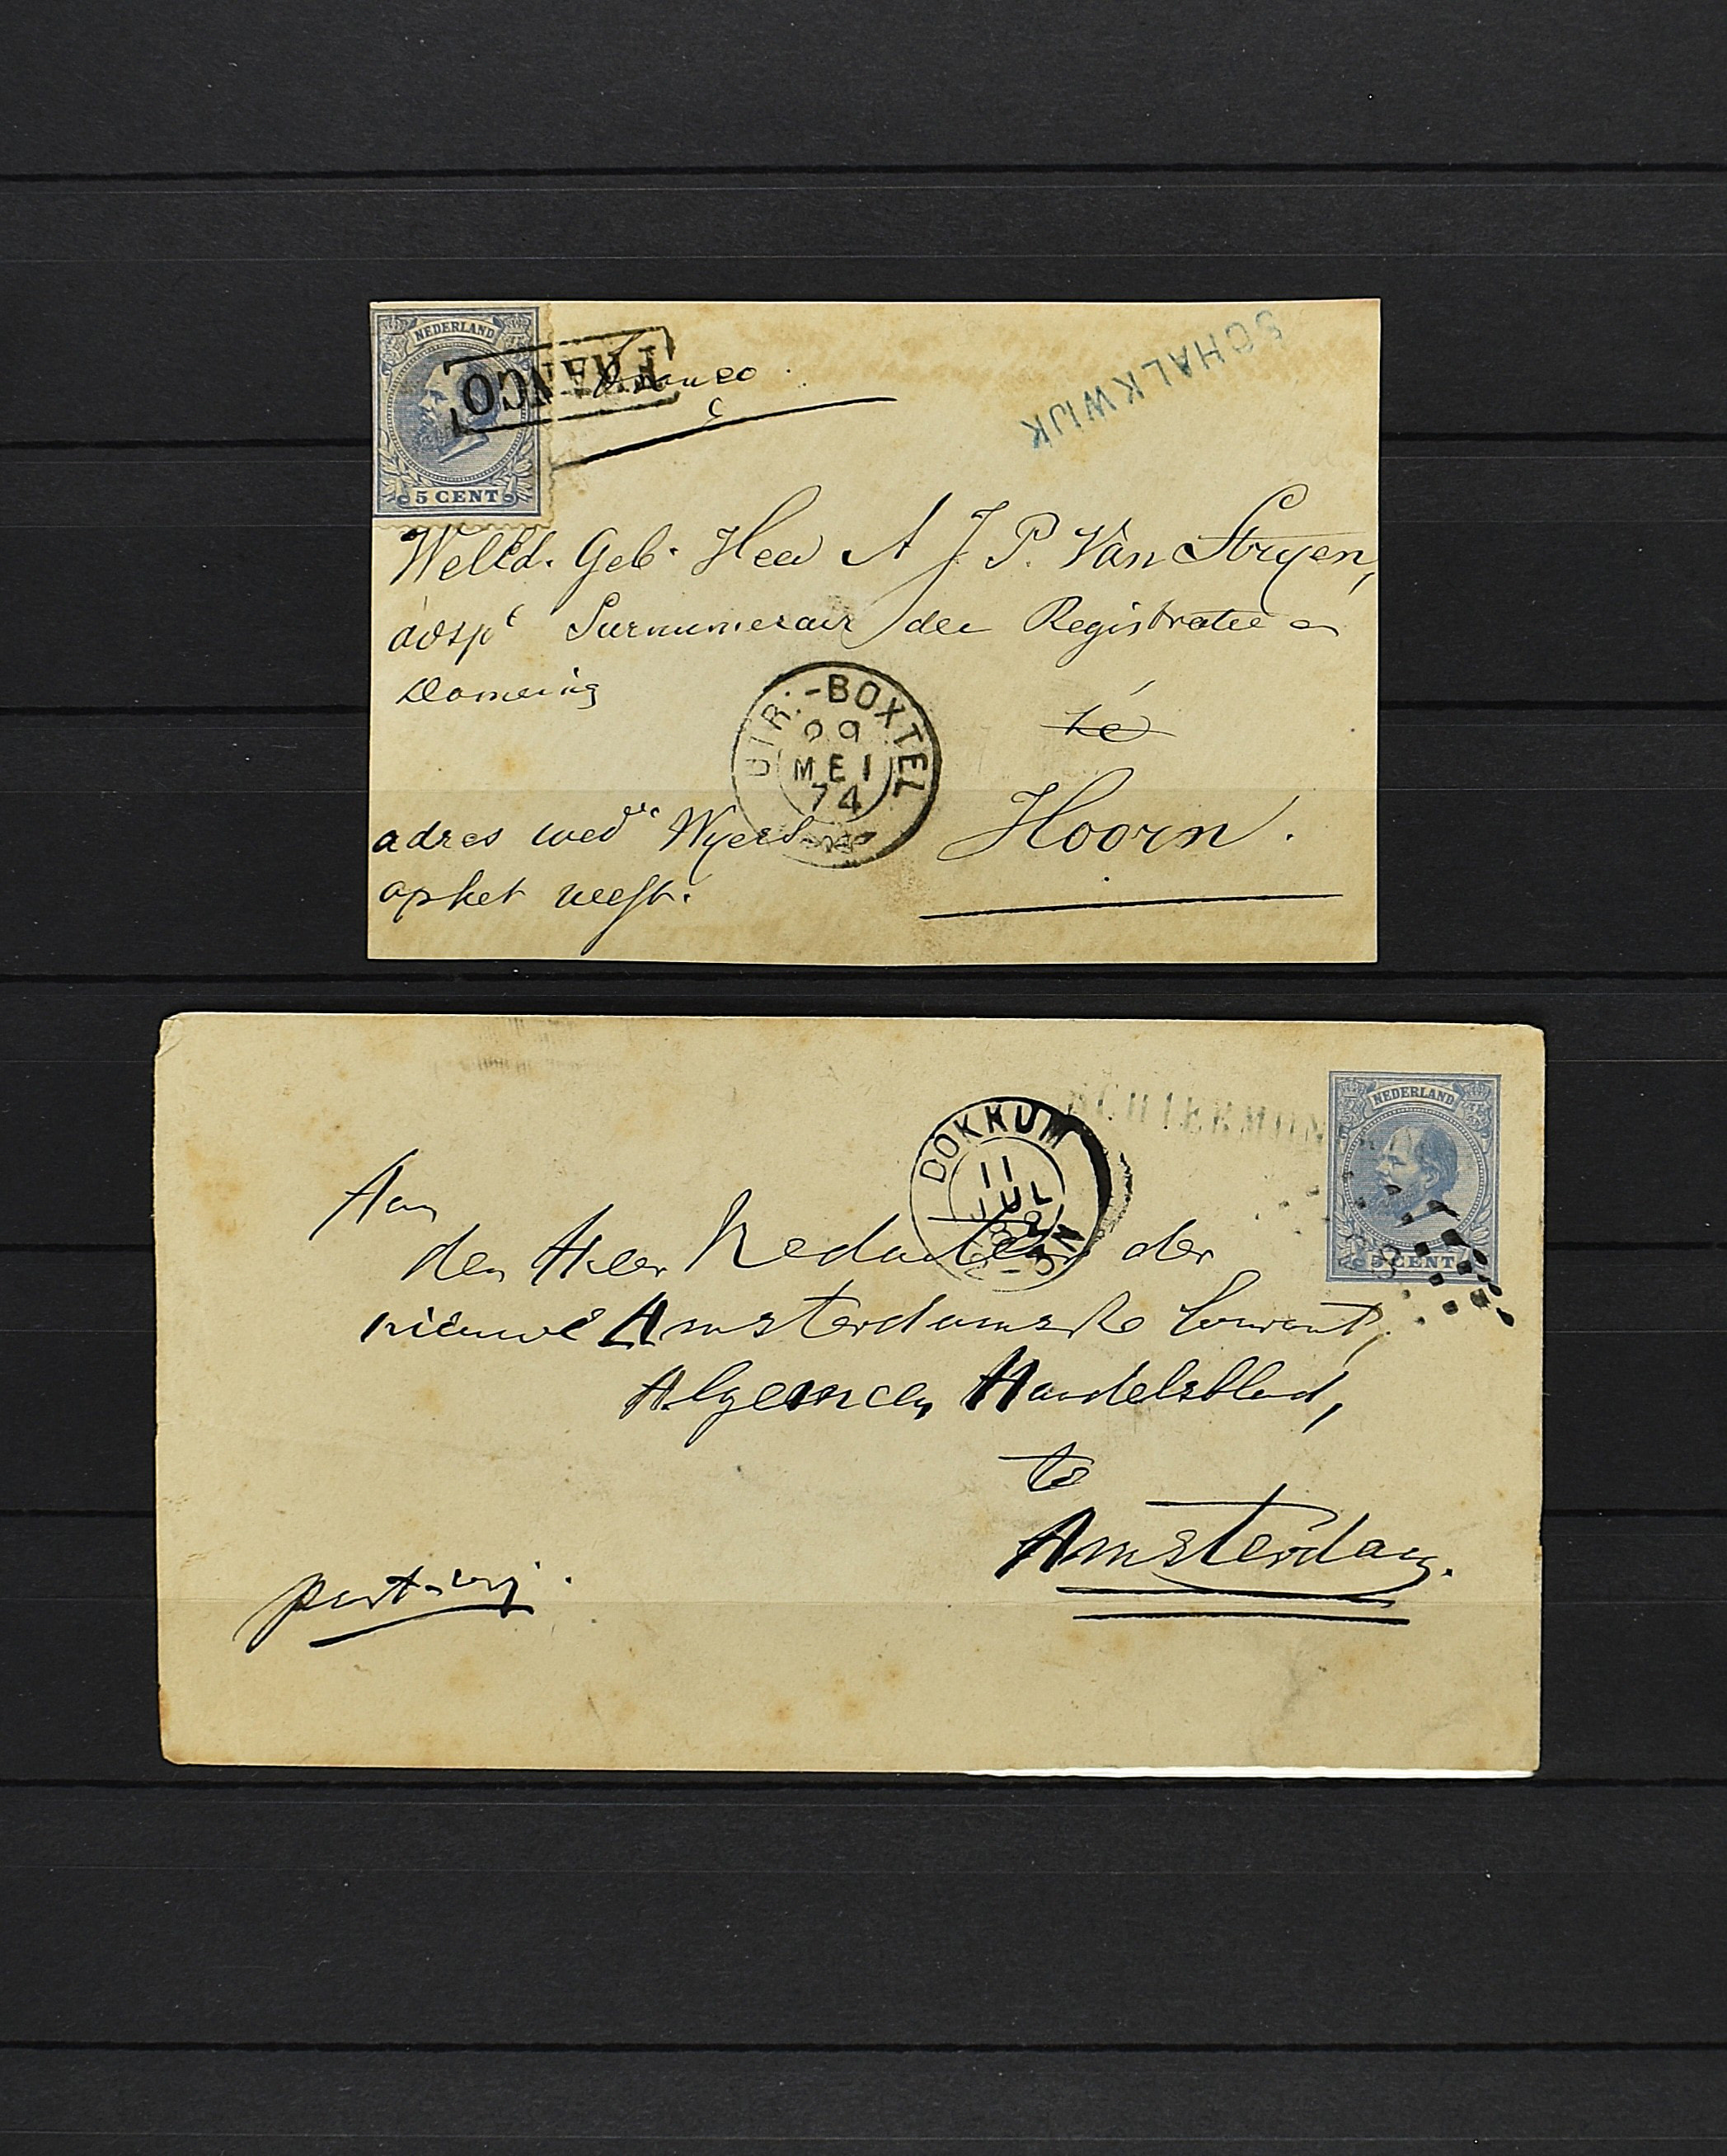 NEDERLAND
5 CENT
FRANCO
franco
SCHALKWIJK
WelEd. Geb. Heer A J. P. Van Stryen,
adsp^t Surnumerair der Registratie en
Domeinen
UTR:-BOXTEL
09
MEI
74
te
Hoorn.
adres wed^e
op het
NEDERLAND
5 CENT
DOKKUM
11
JUL
Aan
den Heer Redacteur der
nieuwe Amsterdamsche Courant,
Algemeen Handelsblad,
te
Amsterdam.